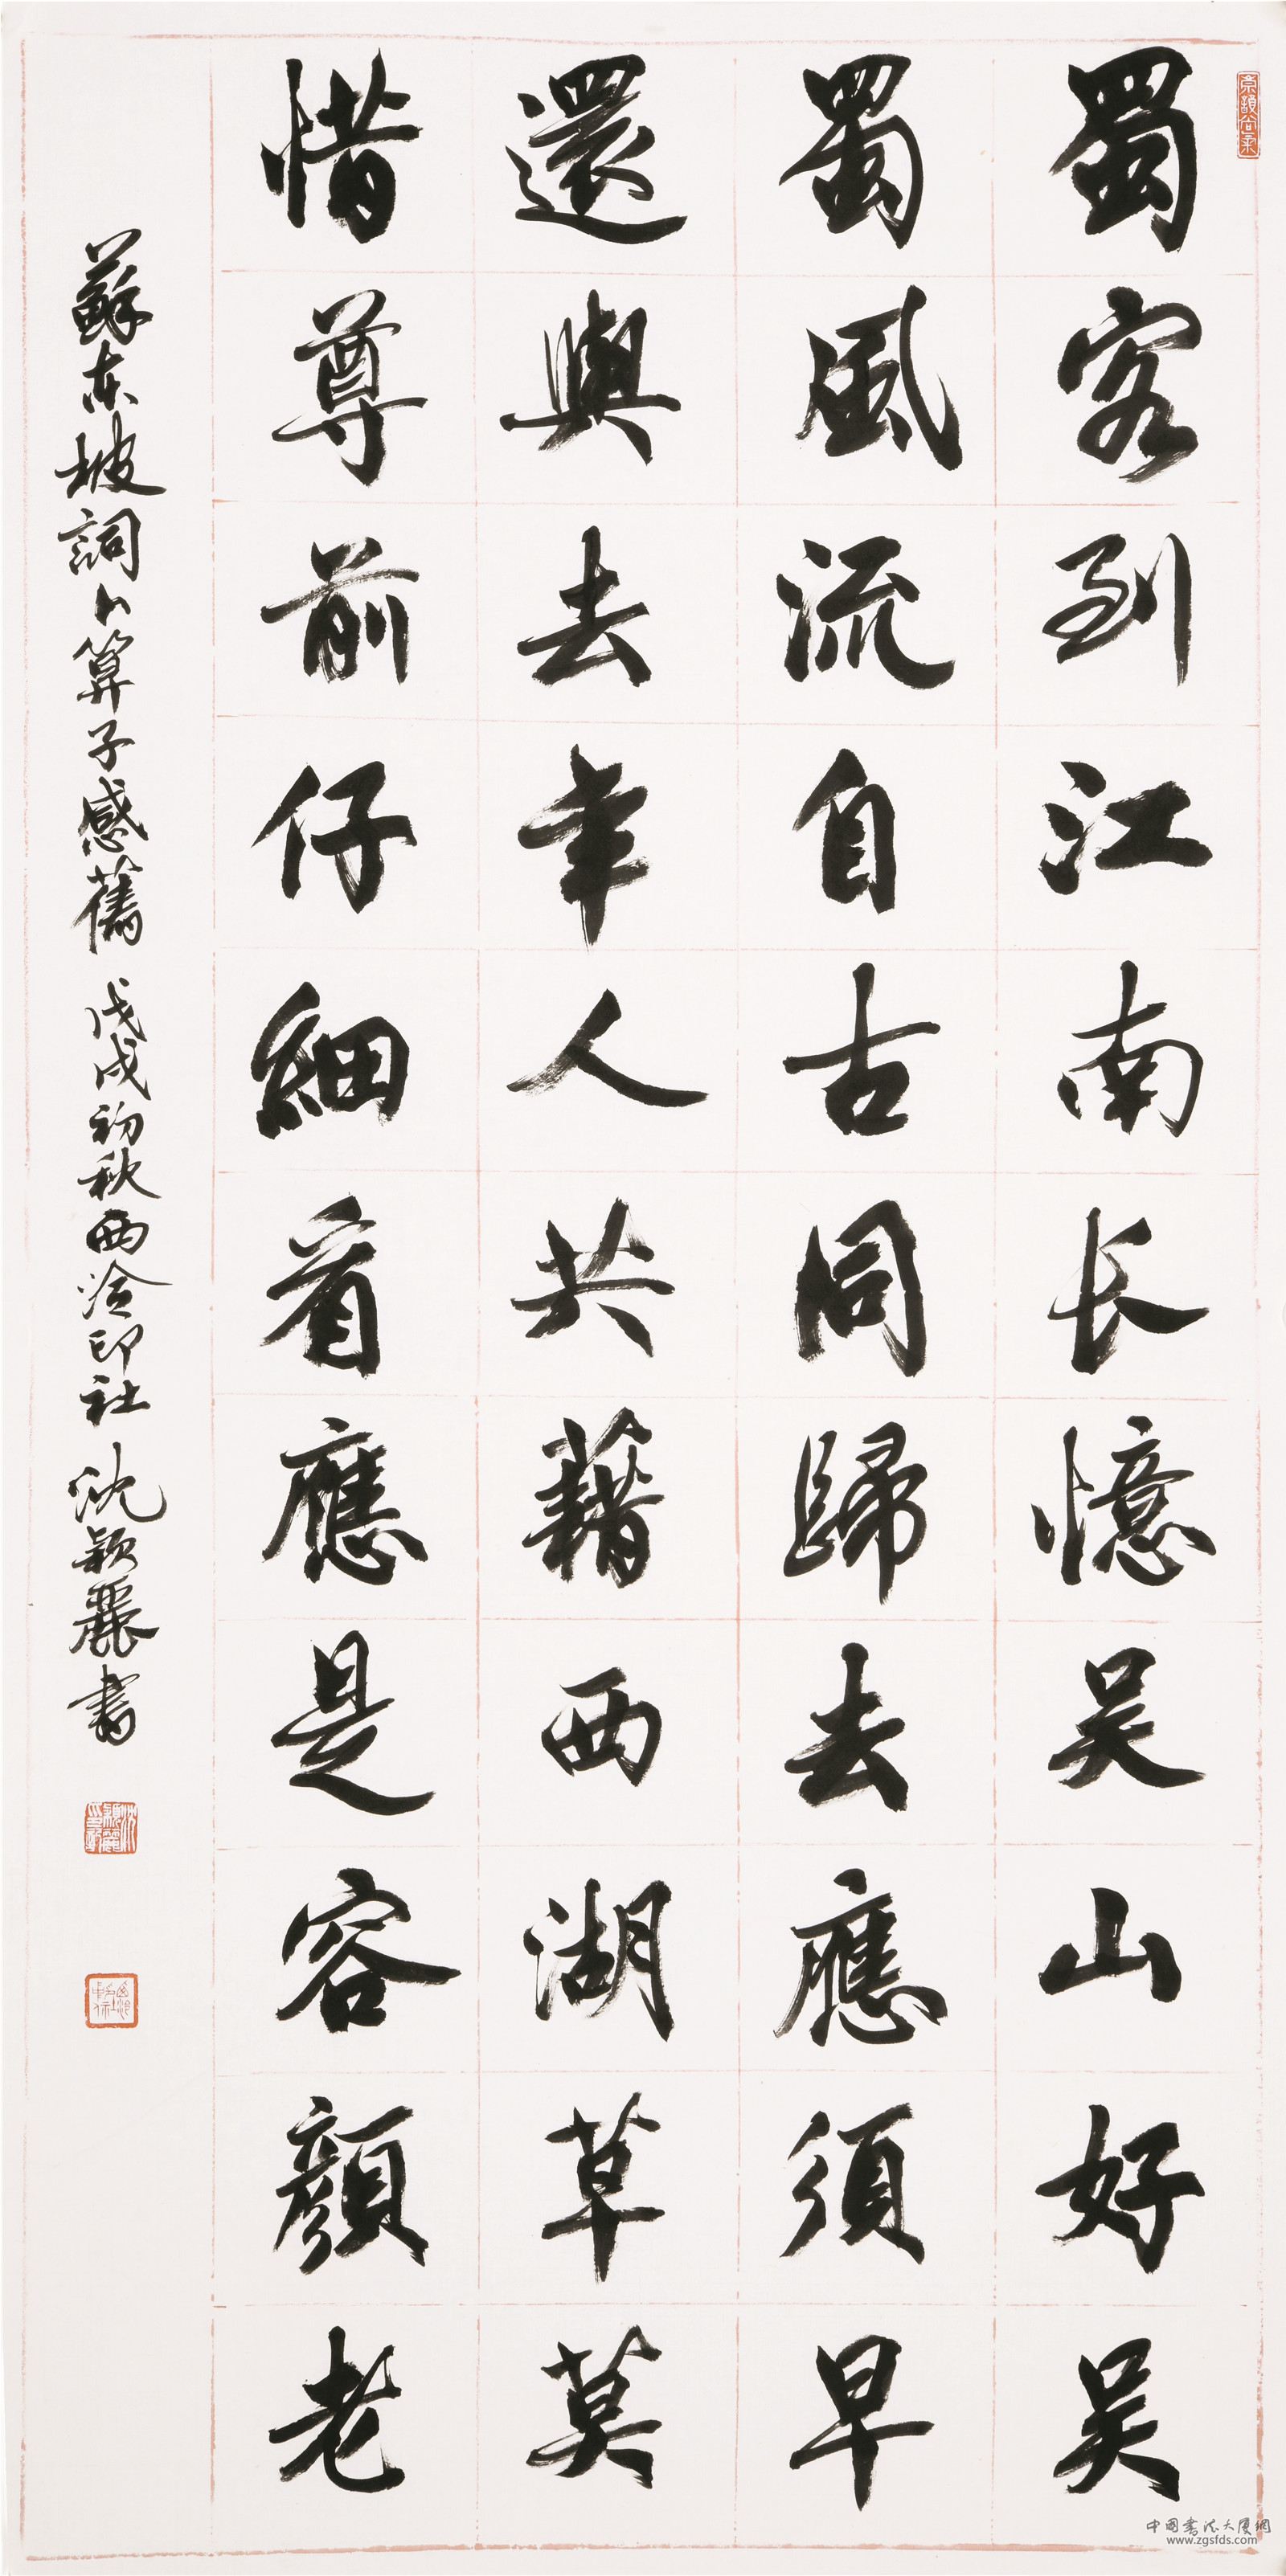 蜀客到江南长憶吴山好吴
蜀風流自古同歸去應須早
還與去年人共藉西湖草莫
惜尊前仔細看應是容顔老
蘇東坡詞卜算子感舊 戊戌初秋西泠印社沈颖麗書
中国书法大厦网
www.zgsfds.com